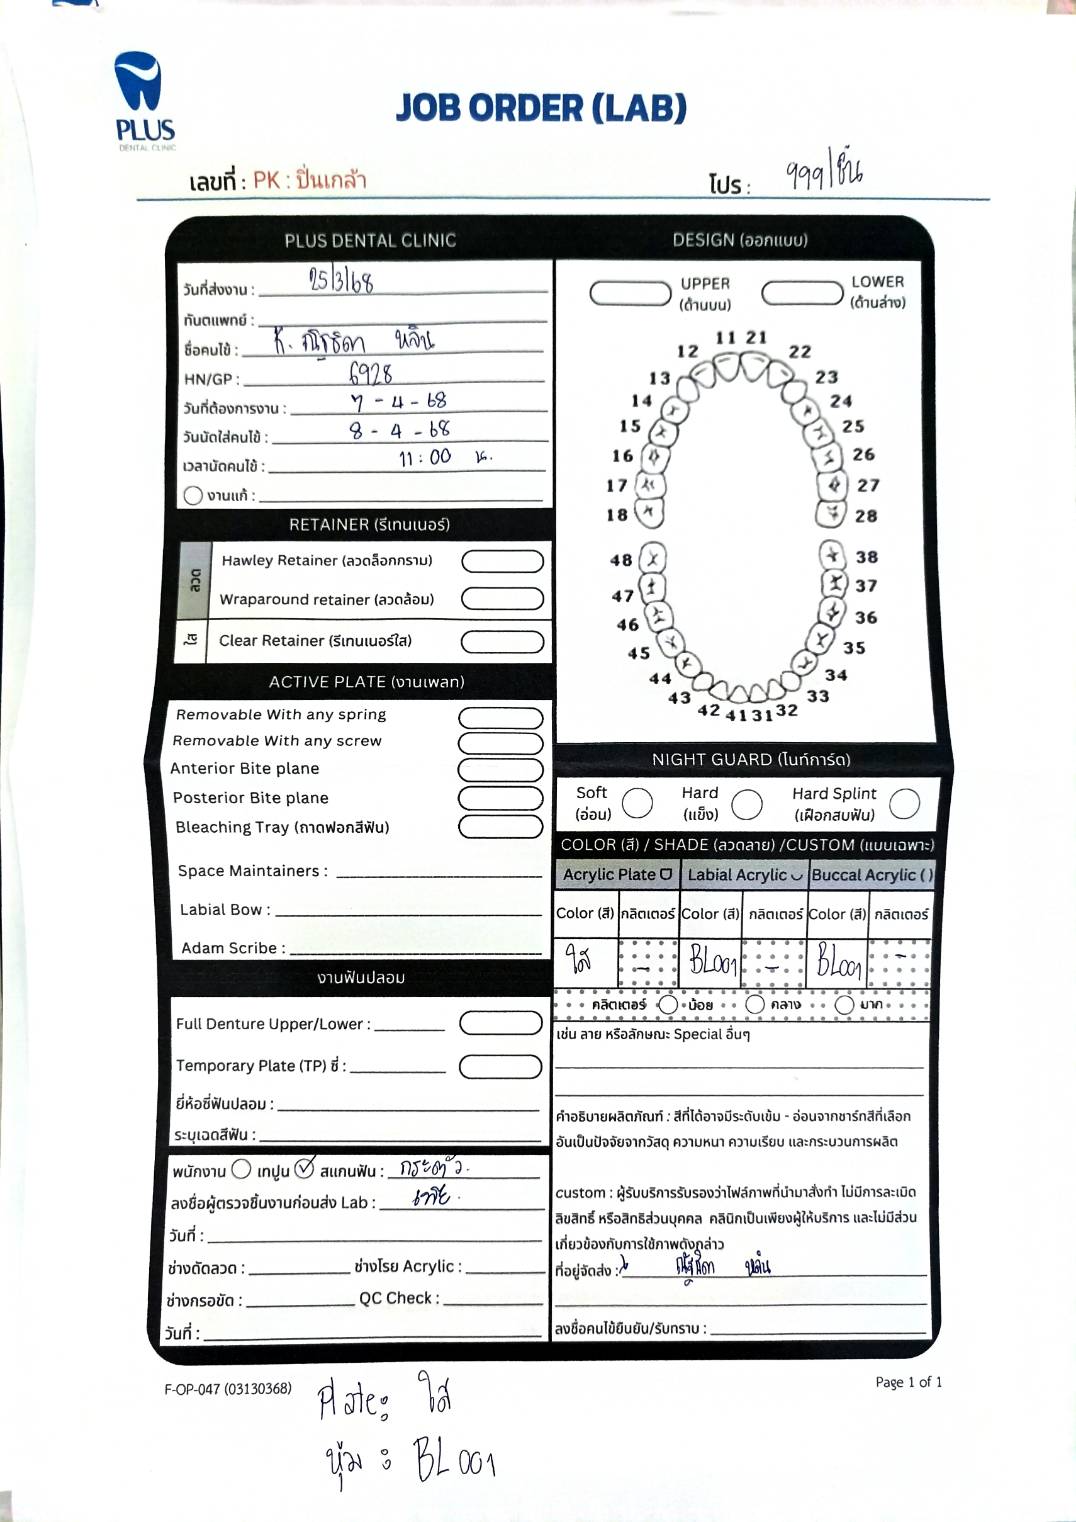 PLUS
DENTAL CLINIC
JOB ORDER (LAB)
เลขที่ : PK : ปิ่นเกล้า
โปร : 999/ชิ้น
PLUS DENTAL CLINIC
วันที่ส่งงาน : 25/3/68
ทันตแพทย์ :
ชื่อคนไข้ :
HN/GP : 6928
วันที่ต้องการงาน : 7 - 4 - 68
วันนัดใส่คนไข้ : 8 - 4 - 68
เวลานัดคนไข้ : 11:00 น.
งานแก้ :
RETAINER (รีเทนเนอร์)
ลวด
Hawley Retainer (ลวดล็อกกราม)
Wraparound retainer (ลวดล้อม)
ใส
Clear Retainer (รีเทนเนอร์ใส)
ACTIVE PLATE (งานเพลท)
Removable With any spring
Removable With any screw
Anterior Bite plane
Posterior Bite plane
Bleaching Tray (ถาดฟอกสีฟัน)
Space Maintainers :
Labial Bow :
Adam Scribe :
งานฟันปลอม
Full Denture Upper/Lower :
Temporary Plate (TP) ซี่ :
ยี่ห้อซี่ฟันปลอม :
ระบุเฉดสีฟัน :
พนักงาน เทปูน สแกนฟัน :
ลงชื่อผู้ตรวจชิ้นงานก่อนส่ง Lab :
วันที่ :
ช่างดัดลวด : ช่างโรย Acrylic :
ช่างกรอขัด : QC Check :
วันที่ :
DESIGN (ออกแบบ)
UPPER (ด้านบน)
LOWER (ด้านล่าง)
11 21
12 22
13 23
14 24
15 25
16 26
17 27
18 28
48 38
47 37
46 36
45 35
44 34
43 33
42 41 31 32
NIGHT GUARD (ไนท์การ์ด)
Soft (อ่อน)
Hard (แข็ง)
Hard Splint (เฝือกสบฟัน)
COLOR (สี) / SHADE (ลวดลาย) /CUSTOM (แบบเฉพาะ)
Acrylic Plate Labial Acrylic Buccal Acrylic ( )
Color (สี) กลิตเตอร์ Color (สี) กลิตเตอร์ Color (สี) กลิตเตอร์
ใส - BL001 - BL001 -
คลิตเตอร์ น้อย กลาง มาก
เช่น ลาย หรือลักษณะ Special อื่นๆ
คำอธิบายผลิตภัณฑ์ : สีที่ได้อาจมีระดับเข้ม - อ่อนจากชาร์ทสีที่เลือก
อันเป็นปัจจัยจากวัสดุ ความหนา ความเรียบ และกระบวนการผลิต
custom : ผู้รับบริการรับรองว่าไฟล์ภาพที่นำมาสั่งทำ ไม่มีการละเมิด
ลิขสิทธิ์ หรือสิทธิส่วนบุคคล คลินิกเป็นเพียงผู้ให้บริการ และไม่มีส่วน
เกี่ยวข้องกับการใช้ภาพดังกล่าว
ที่อยู่จัดส่ง :
ลงชื่อคนไข้ยืนยัน/รับทราบ :
F-OP-047 (03130368)
Page 1 of 1
Plate : ใส
หุ้ม : BL001